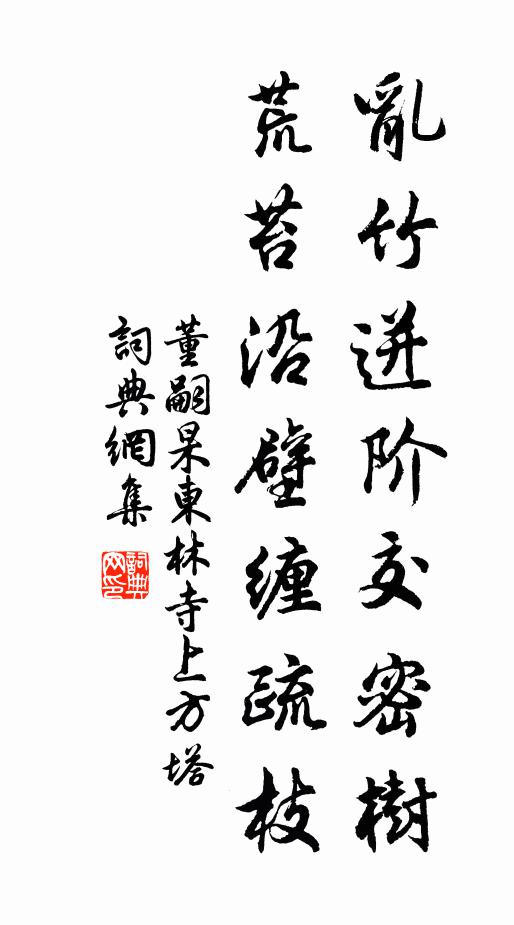 亂竹迸阶交密樹
荒苔沿壁缠疏枝
董嗣杲東林寺上方塔
詞典網集
詞典網印